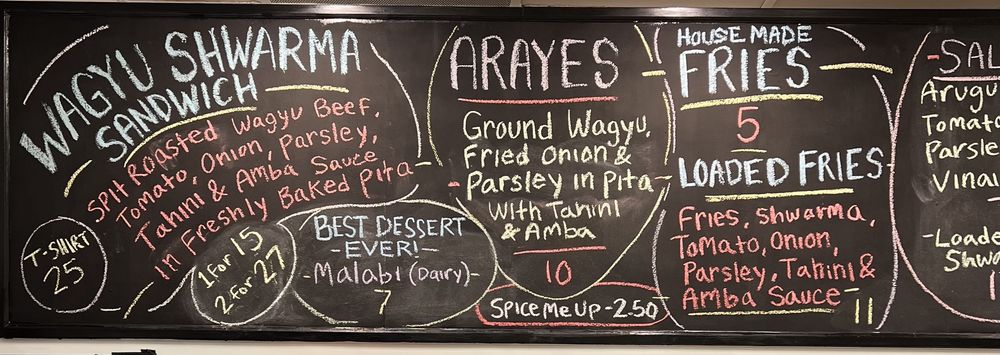 WAGYU SHWARMA
SANDWICH
Spit Roasted Wagyu Beef,
Tomato, Onion, Parsley,
Tahini & Amba Sauce
in Freshly Baked Pita
1 for 15
2 for 27
T-SHIRT
25
BEST DESSERT
-EVER!-
-Malabi (Dairy)-
7
ARAYES
Ground Wagyu,
Fried Onion &
-Parsley in Pita-
with Tahini
& Amba
10
Spice Me Up - 2.50
HOUSE MADE
FRIES
5
LOADED FRIES
Fries, Shwarma,
Tomato, Onion,
Parsley, Tahini &
Amba Sauce
11
-SAL
Arugu
Tomato
Parsle
Vinai
-Loade
Shwa
1